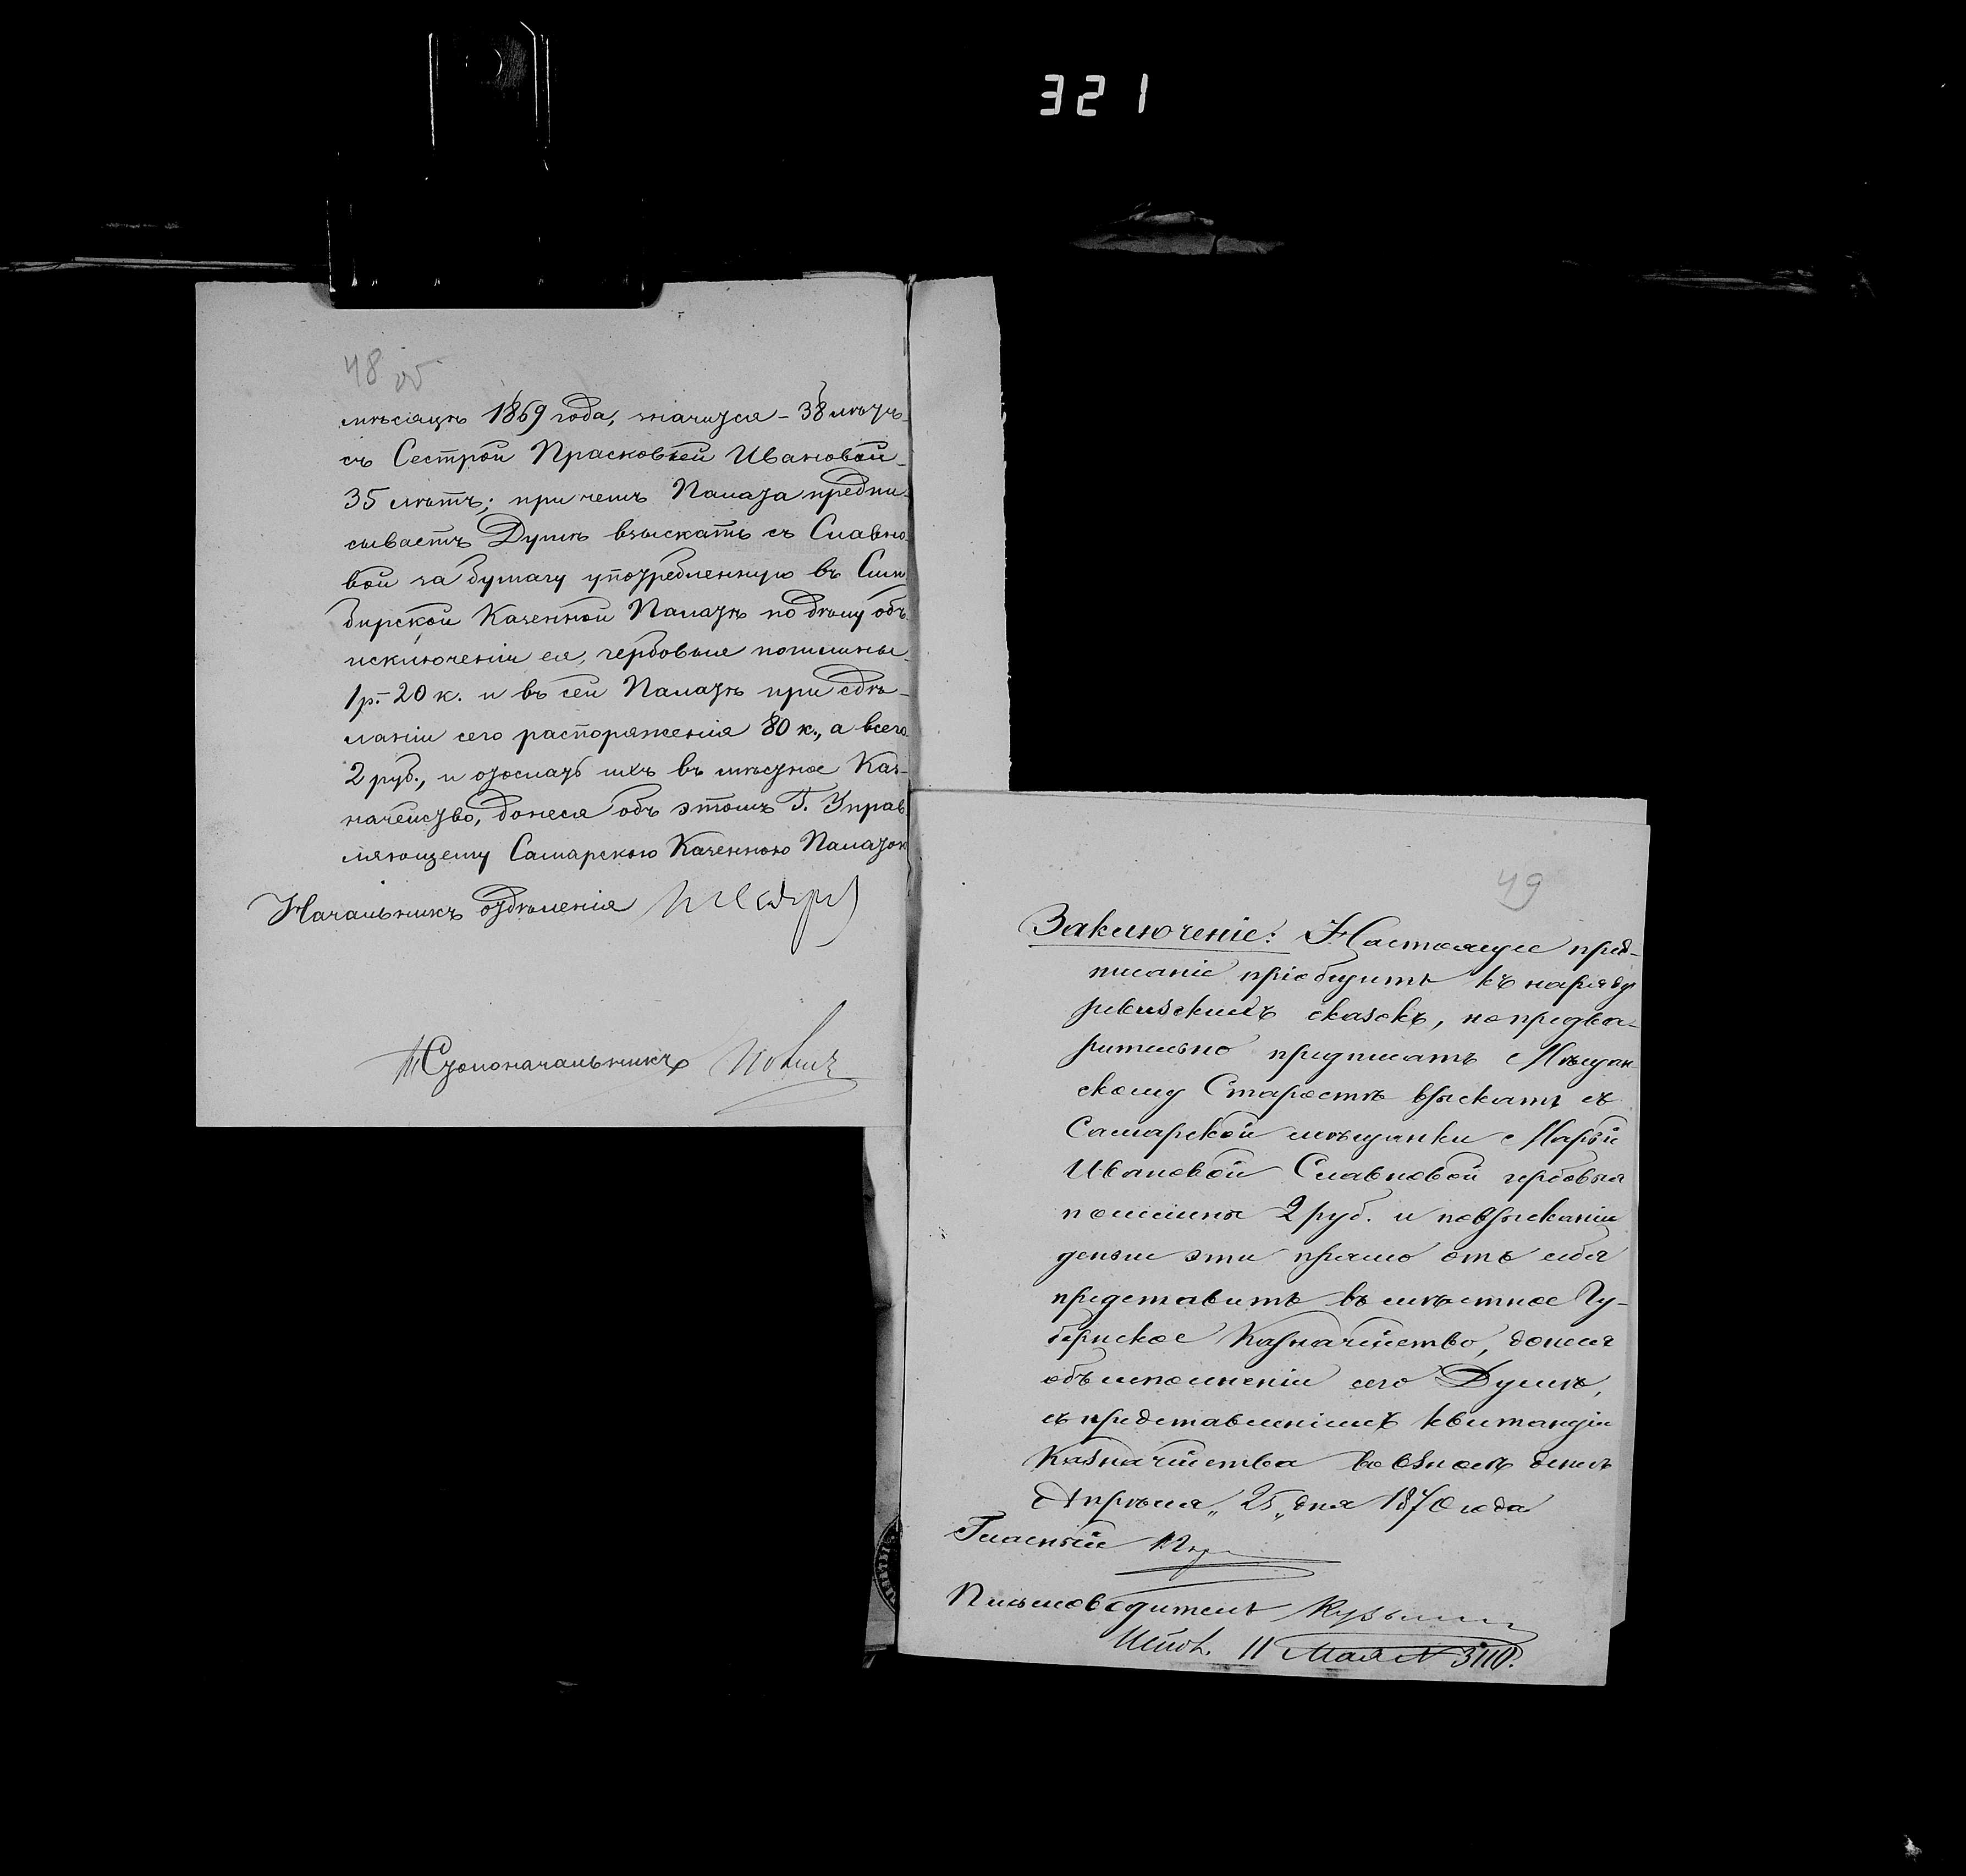 321
48 об
мѣсяцѣ 1869 года, значится – 38 лѣтъ
съ Сестрой Прасковьей Ивановой
35 лѣтъ; при чемъ Палата предпи-
сываетъ Думѣ взыскать съ Славно
вой за бумагу употребленную въ Сим
бирской Казенной Палатѣ по дѣлу объ
исключеніи ея, гербовые пошлины
1 р. 20 к. и въ сей Палатѣ при сдѣ-
ланіи сего распоряженія 80 к., а всего
2 руб., и отослать ихъ въ мѣстное Каз-
начейство, донеся объ этомъ Г. Управ
ляющему Самарскою Казенною Палатою
Начальникъ отдѣленія
Столоначальникъ
49
Заключеніе: Настоящее пред-
писаніе пріобщить къ наряду
ревизскихъ сказокъ, но предва-
рительно предписать Мѣщан
скому Старостѣ взыскать съ
Самарской мѣщанки Марьи
Ивановой Славновой гербовыя
пошлины 2 руб. и по взысканіи
деньги эти прямо отъ себя
представить въ мѣстное Гу-
бернское Казначейство, донеся
объ исполненіи сего Думѣ,
съ представленіемъ квитанціи
Казначейства во взносѣ денегъ
Апрѣля „25„ дня 1870 года
Гласный
Письмоводитель
Исполн. 11 Мая N 3110.